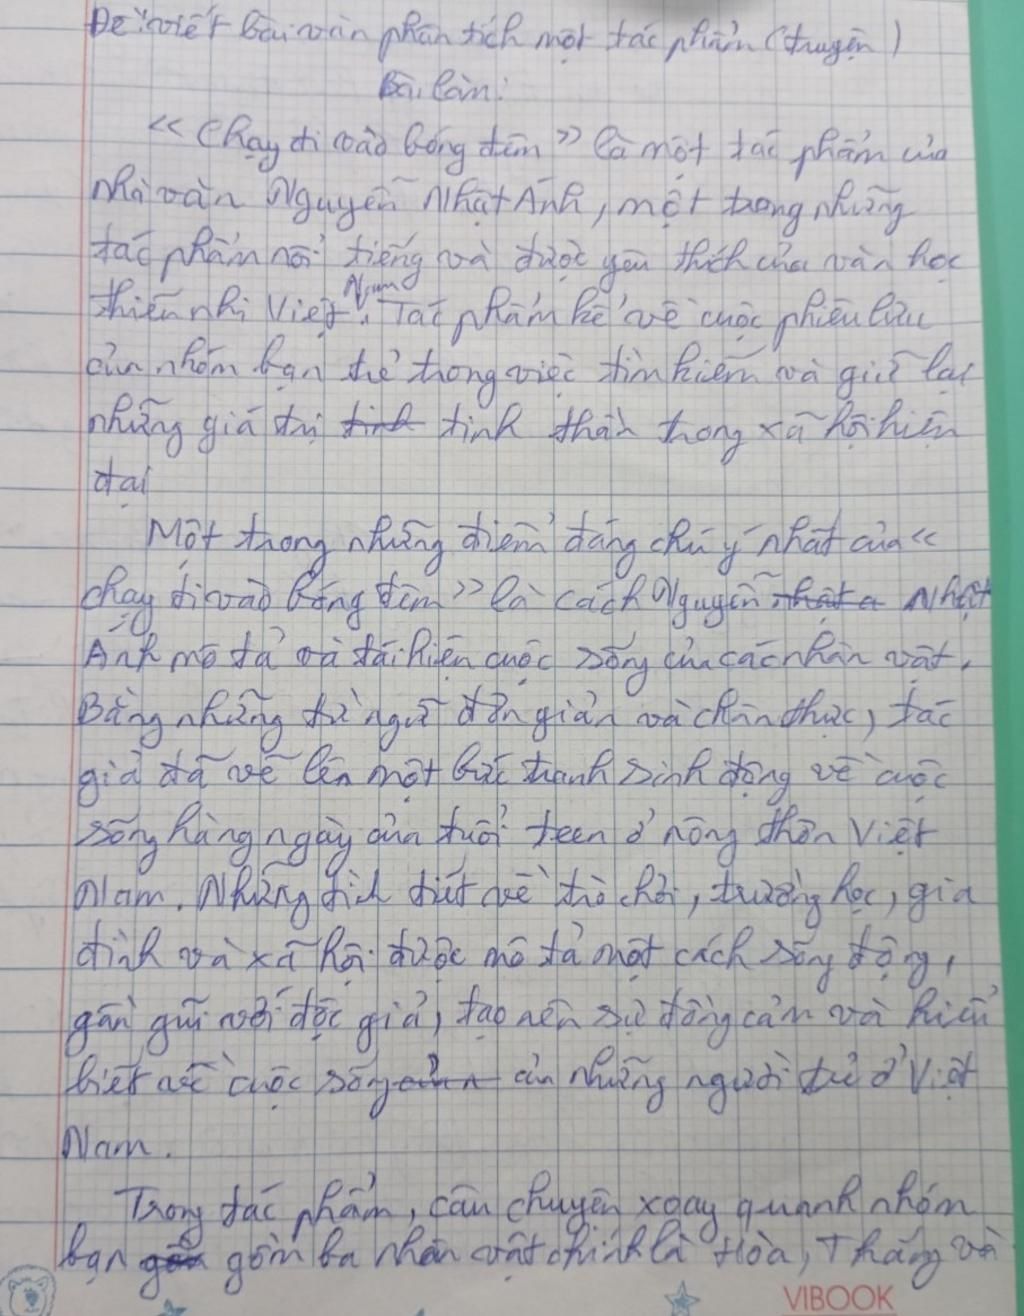 Đề: viết bài văn phân tích một tác phẩm (truyện)
Bài làm:
<< Chạy đi vào bóng đêm >> là một tác phẩm của
nhà văn Nguyễn Nhật Ánh, một trong những
tác phẩm nổi tiếng và được yêu thích của văn học
thiếu nhi Việt Nam. Tác phẩm kể về cuộc phiêu lưu
của nhóm bạn trẻ trong việc tìm kiếm và giữ lại
những giá trị tinh tinh thần trong xã hội hiện
đại
Một trong những điểm đáng chú ý nhất của <<
chạy đi vào bóng đêm >> là cách Nguyễn nhật a Nhật
Ánh mô tả và tái hiện cuộc sống của các nhân vật.
Bằng những từ ngữ đơn giản và chân thực, tác
giả đã vẽ lên một bức tranh sinh động về cuộc
sống hàng ngày của tuổi teen ở nông thôn Việt
Nam. Những tình tiết về trò chơi, trường học, gia
đình và xã hội được mô tả một cách sống động,
gần gũi với độc giả, tạo nên sự đồng cảm và hiểu
biết về cuộc sống của những người trẻ ở Việt
Nam.
Trong tác phẩm, câu chuyện xoay quanh nhóm
bạn gồm ba nhân vật chính là Hòa, Thắng và
VIBOOK